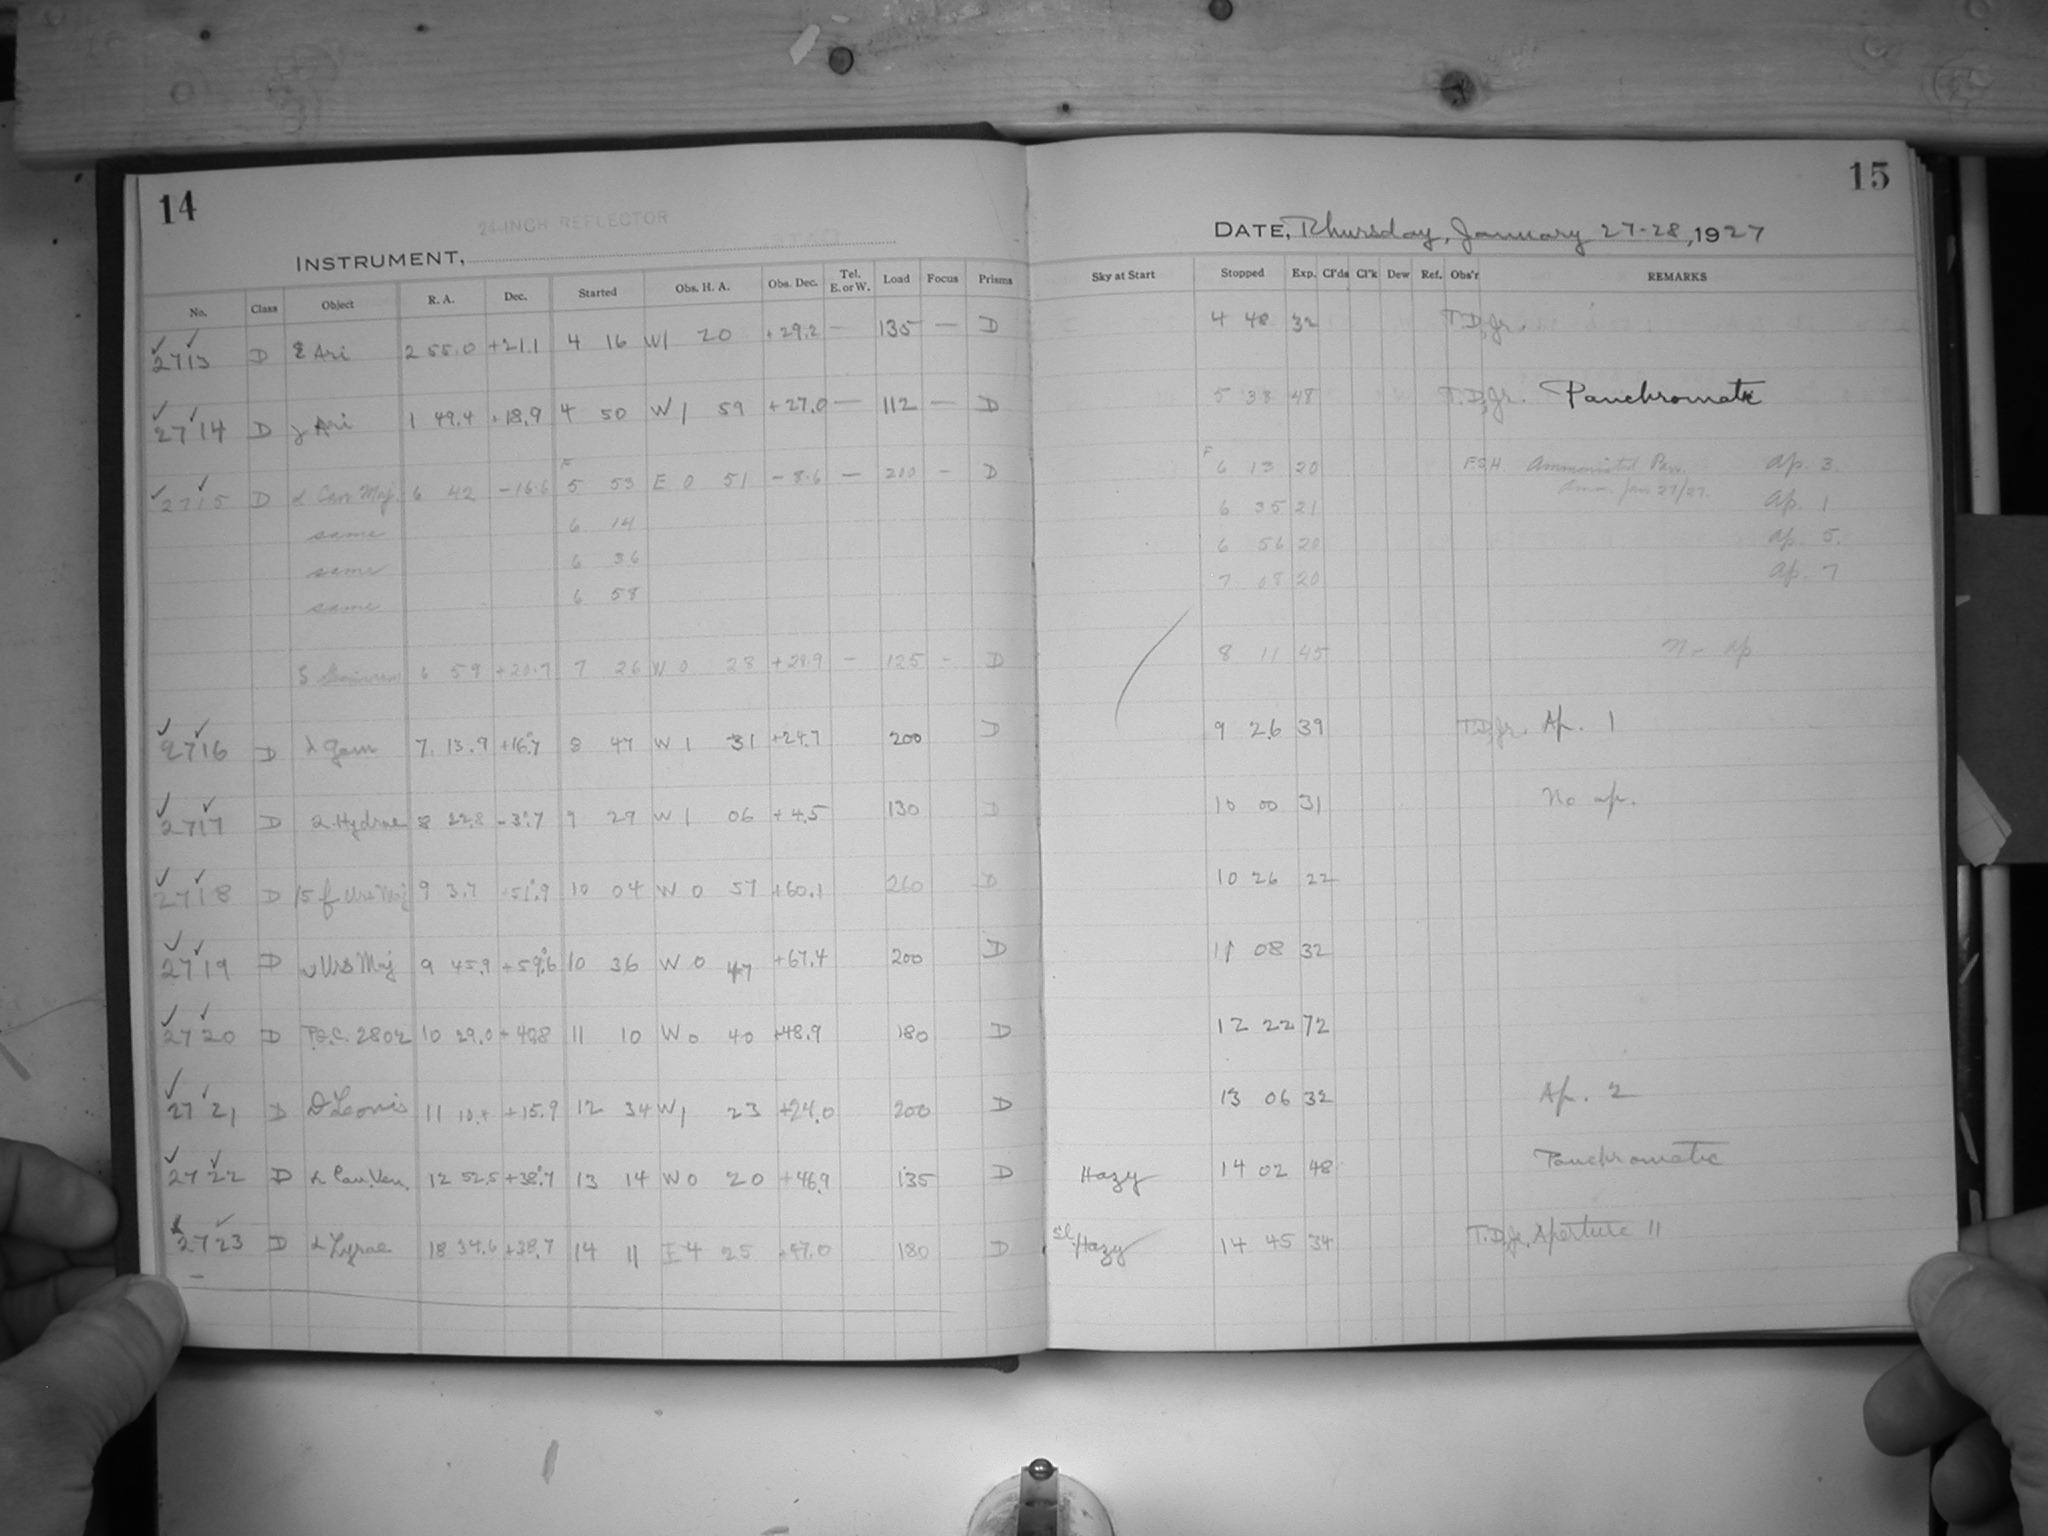 14
24-INCH REFLECTOR
INSTRUMENT,
No. Class Object R. A. Dec. Started Obs. H. A. Obs. Dec. Tel. E. or W. Load Focus Prisms
2713 D ε Ari 2 55.0 +21.1 4 16 W 1 20 +29.2 — 135 — D
2714 D γ Ari 1 49.4 +18.9 4 50 W 1 59 +27.0 — 112 — D
2715 D α Can Maj. 6 42 -16.6 F 5 53 E 0 51 -8.6 — 200 — D
same 6 14
same 6 36
same 6 58
ζ 6 59 +20.7 7 26 W 0 28 +28.9 — 125 — D
2716 D λ Gem 7 13.9 +16.7 8 47 W 1 31 +24.7 200 D
2717 D 2 Hydrae 8 22.8 -3.7 9 29 W 1 06 +4.5 130 D
2718 D 15 f Urs Maj 9 3.7 +51.9 10 04 W 0 57 +60.1 260 D
2719 D υ Urs Maj 9 45.9 +59.6 10 36 W 0 47 +67.4 200 D
2720 D 2802 10 29.0 +40.8 11 10 W 0 40 +48.9 180 D
2721 D θ Leonis 11 10.4 +15.9 12 34 W 1 23 +24.0 200 D
2722 D α Can. Ven. 12 52.5 +38.7 13 14 W 0 20 +46.9 135 D
2723 D α Lyrae 18 34.6 +38.7 14 11 E 4 25 +47.0 180 D
15
DATE, Thursday, January 27-28, 1927
Sky at Start Stopped Exp. Cl'ds Cl'k Dew Ref. Obs'r REMARKS
4 48 32 T.D,Jr.
5 38 48 T.D,Jr. Panchromatic
F 6 13 20 F.S.H. Ammoniated Pan. Ap. 3.
Amm. Jan 27/27.
6 35 21 Ap. 1
6 56 20 Ap. 5.
7 18 20 Ap. 7
8 11 45 No ap
9 26 39 T.D,Jr. Ap. 1
10 00 31 No ap.
10 26 22
11 08 32
12 22 72
13 06 32 Ap. 2
Hazy 14 02 48 Panchromatic
sl. Hazy 14 45 34 T.D,Jr. Aperture 11